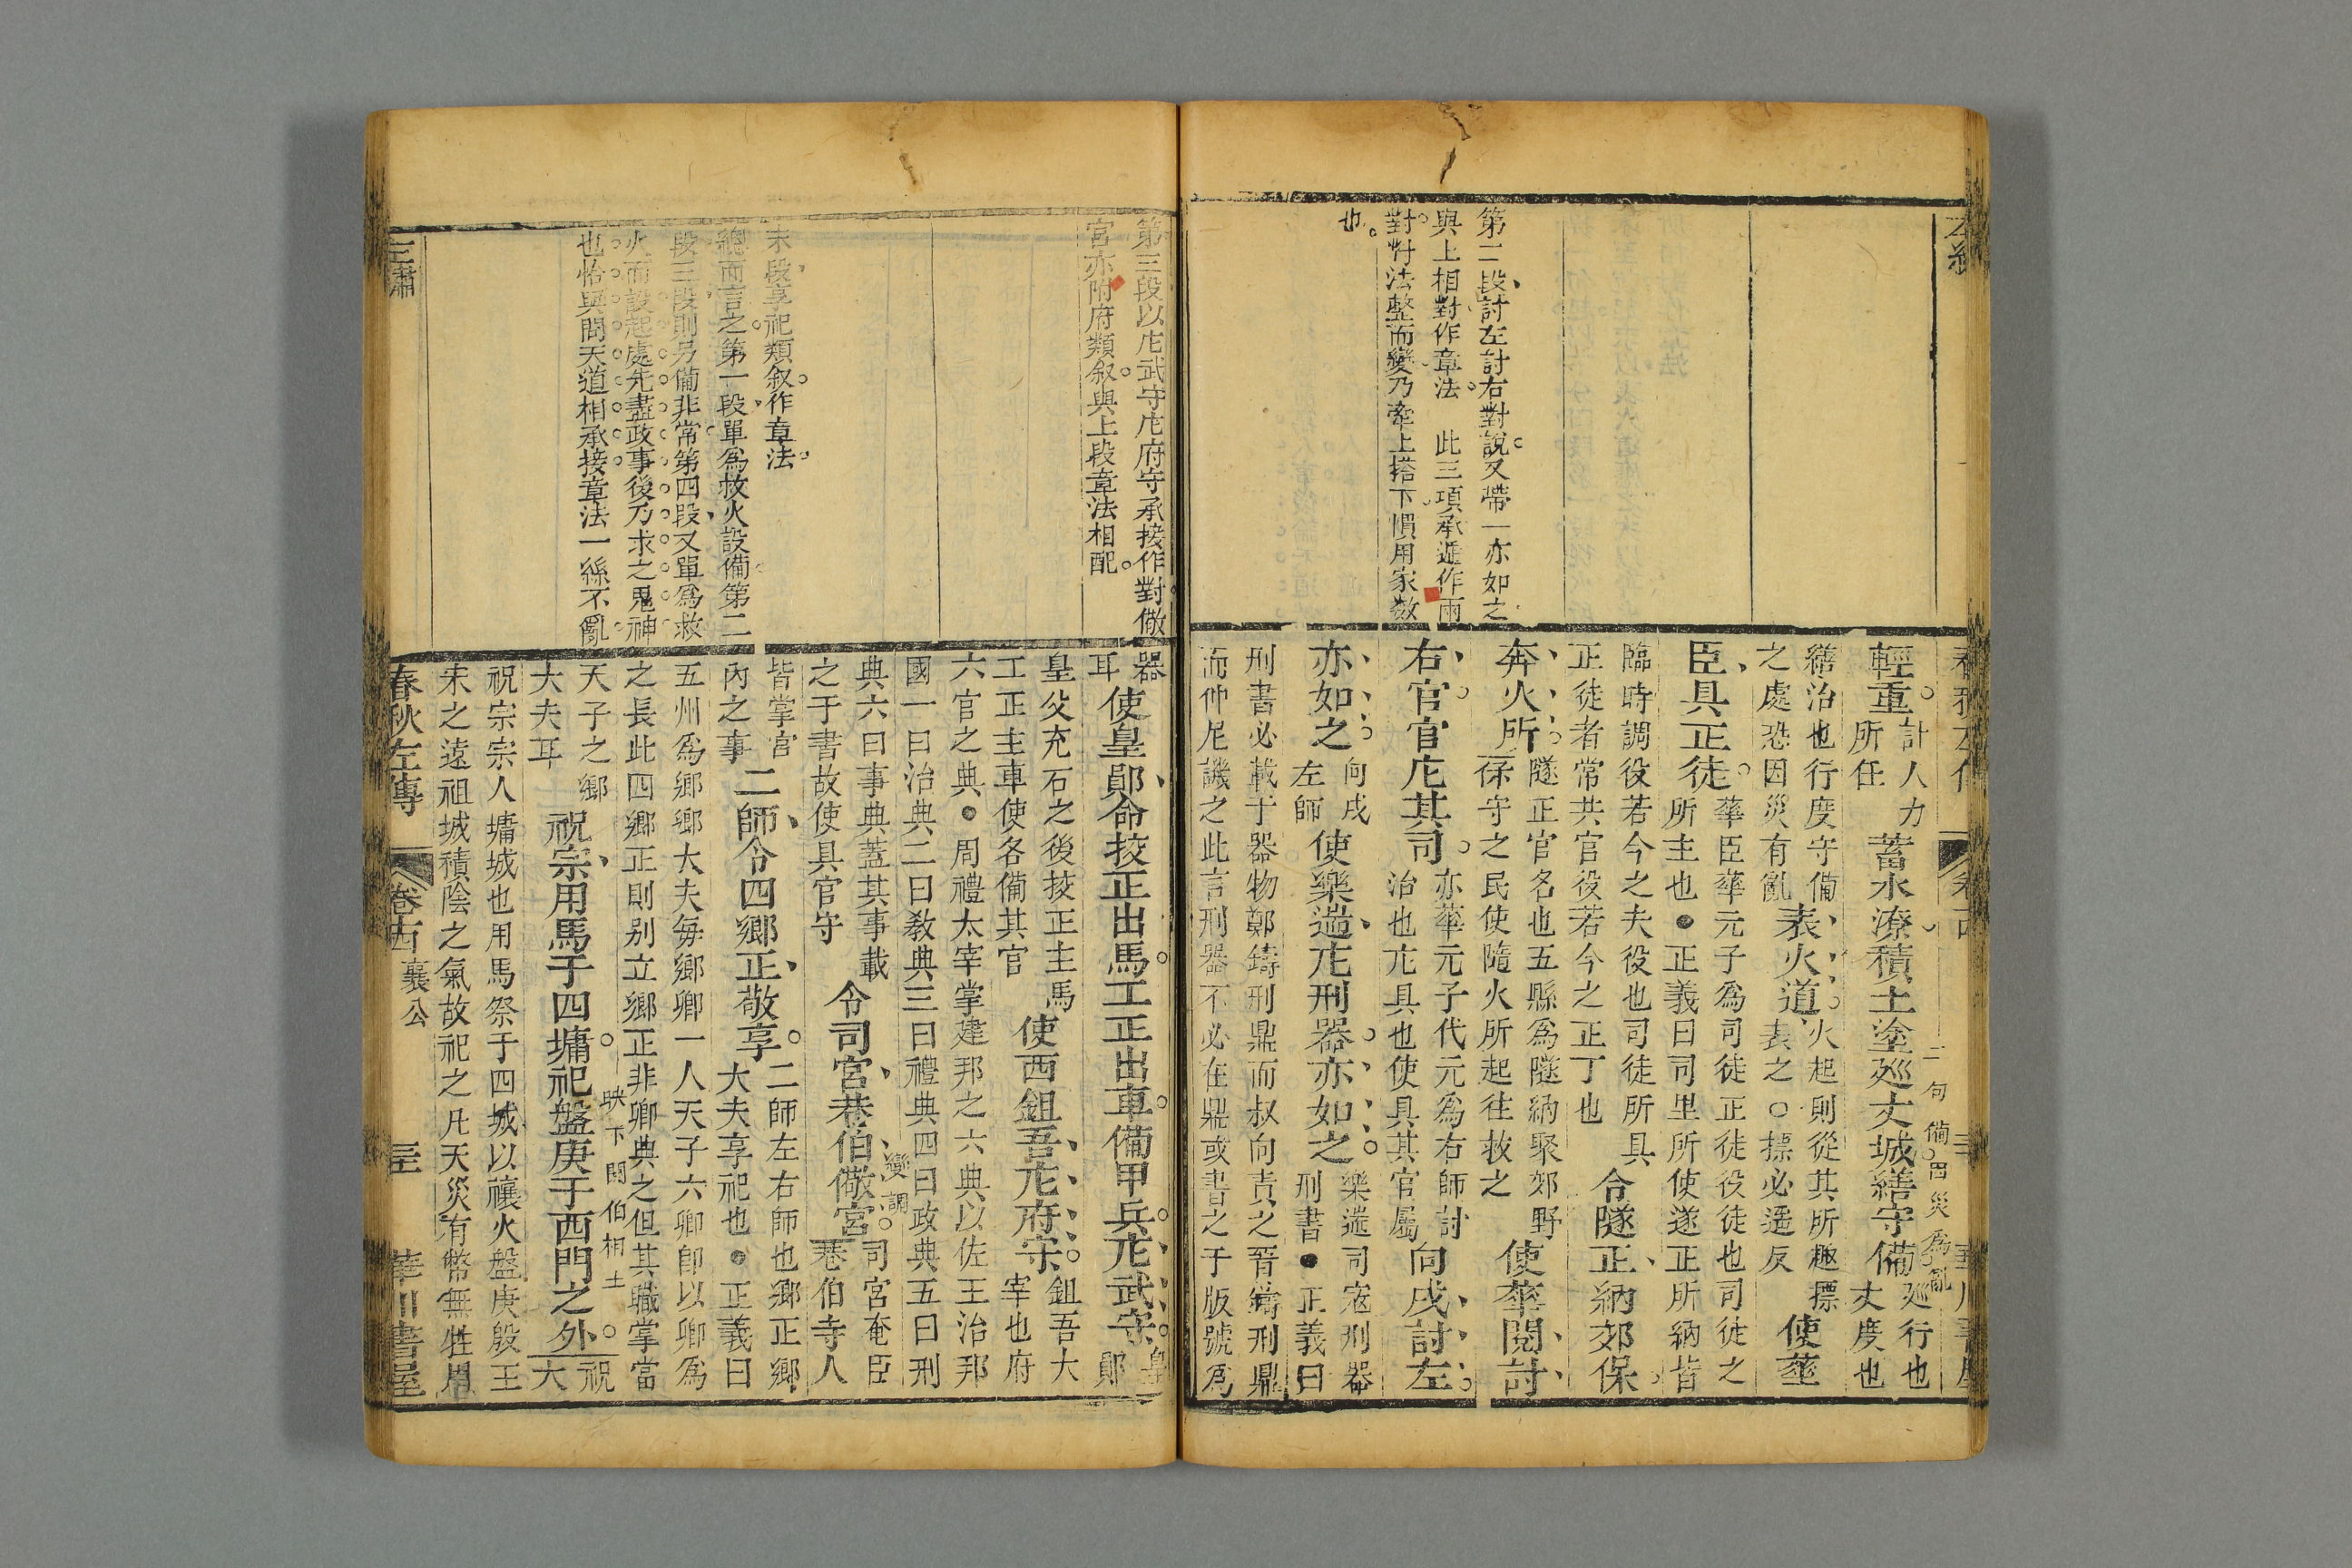 第二段討左討右對說又帶一亦如之
與上相對作章法　此三項承遞作兩
對付法整而變乃牽上搭下慣用家數
也
輕重計人力所任蓄水潦積土塗廵丈城繕守備廵行也丈度也
繕治也行度守備之處恐因災有亂表火道火起則從其所趣標表之○標必遥反使華
臣具正徒華臣華元子爲司徒正徒役徒也司徒之所主也●正義曰司里所使遂正所納皆
臨時調役若今之夫役也司徒所具正徒者常共官役若今之正丁也令隧正納郊保
奔火所隧正官名也五縣爲隧納聚郊野保守之民使隨火所起往救之使華閱討
右官官庀其司亦華元子代元爲右師討治也庀具也使具其官屬向戌討左
亦如之向戌左師使樂遄庀刑器亦如之樂遄司宼刑器刑書●正義曰
刑書必載于器物鄭鑄刑鼎而叔向責之晉鑄刑鼎
而仲尼譏之此言刑器不必在鼎或書之于版號爲
二句
備四災爲亂
第三段以庀武守庀府守承接作對儆
宮亦附府類叙與上段章法相配
末段享祀類叙作章法
總而言之第一段單爲救火設備第二
段三段則另備非常第四段又單爲救
火而設起處先盡政事後乃求之鬼神
也恰與問天道相承接章法一絲不亂
器耳使皇鄖命挍正出馬工正出車備甲兵庀武守皇鄖
皇父充石之後挍正主馬工正主車使各備其官使西鉏吾庀府守鉏吾大宰也府
六官之典●周禮太宰掌建邦之六典以佐王治邦
國一曰治典二曰敎典三曰禮典四曰政典五曰刑
典六曰事典蓋其事載之于書故使具官守令司宮巷伯儆宮司宮奄臣巷伯寺人
變調
皆掌宮內之事二師令四鄉正敬享二師左右師也鄉正鄉大夫享祀也●正義曰
五州爲鄉鄉大夫每鄉卿一人天子六卿卽以卿爲
之長此四鄉正則别立鄉正非卿典之但其職掌當
天子之鄉大夫耳祝宗用馬于四墉祀盤庚于西門之外祝大
映下閼伯相土
祝宗宗人墉城也用馬祭于四城以禳火盤庚殷王
末之遠祖城積陰之氣故祀之凡天災有幣無牲用
春秋左傳　卷十四　襄公　華川書屋